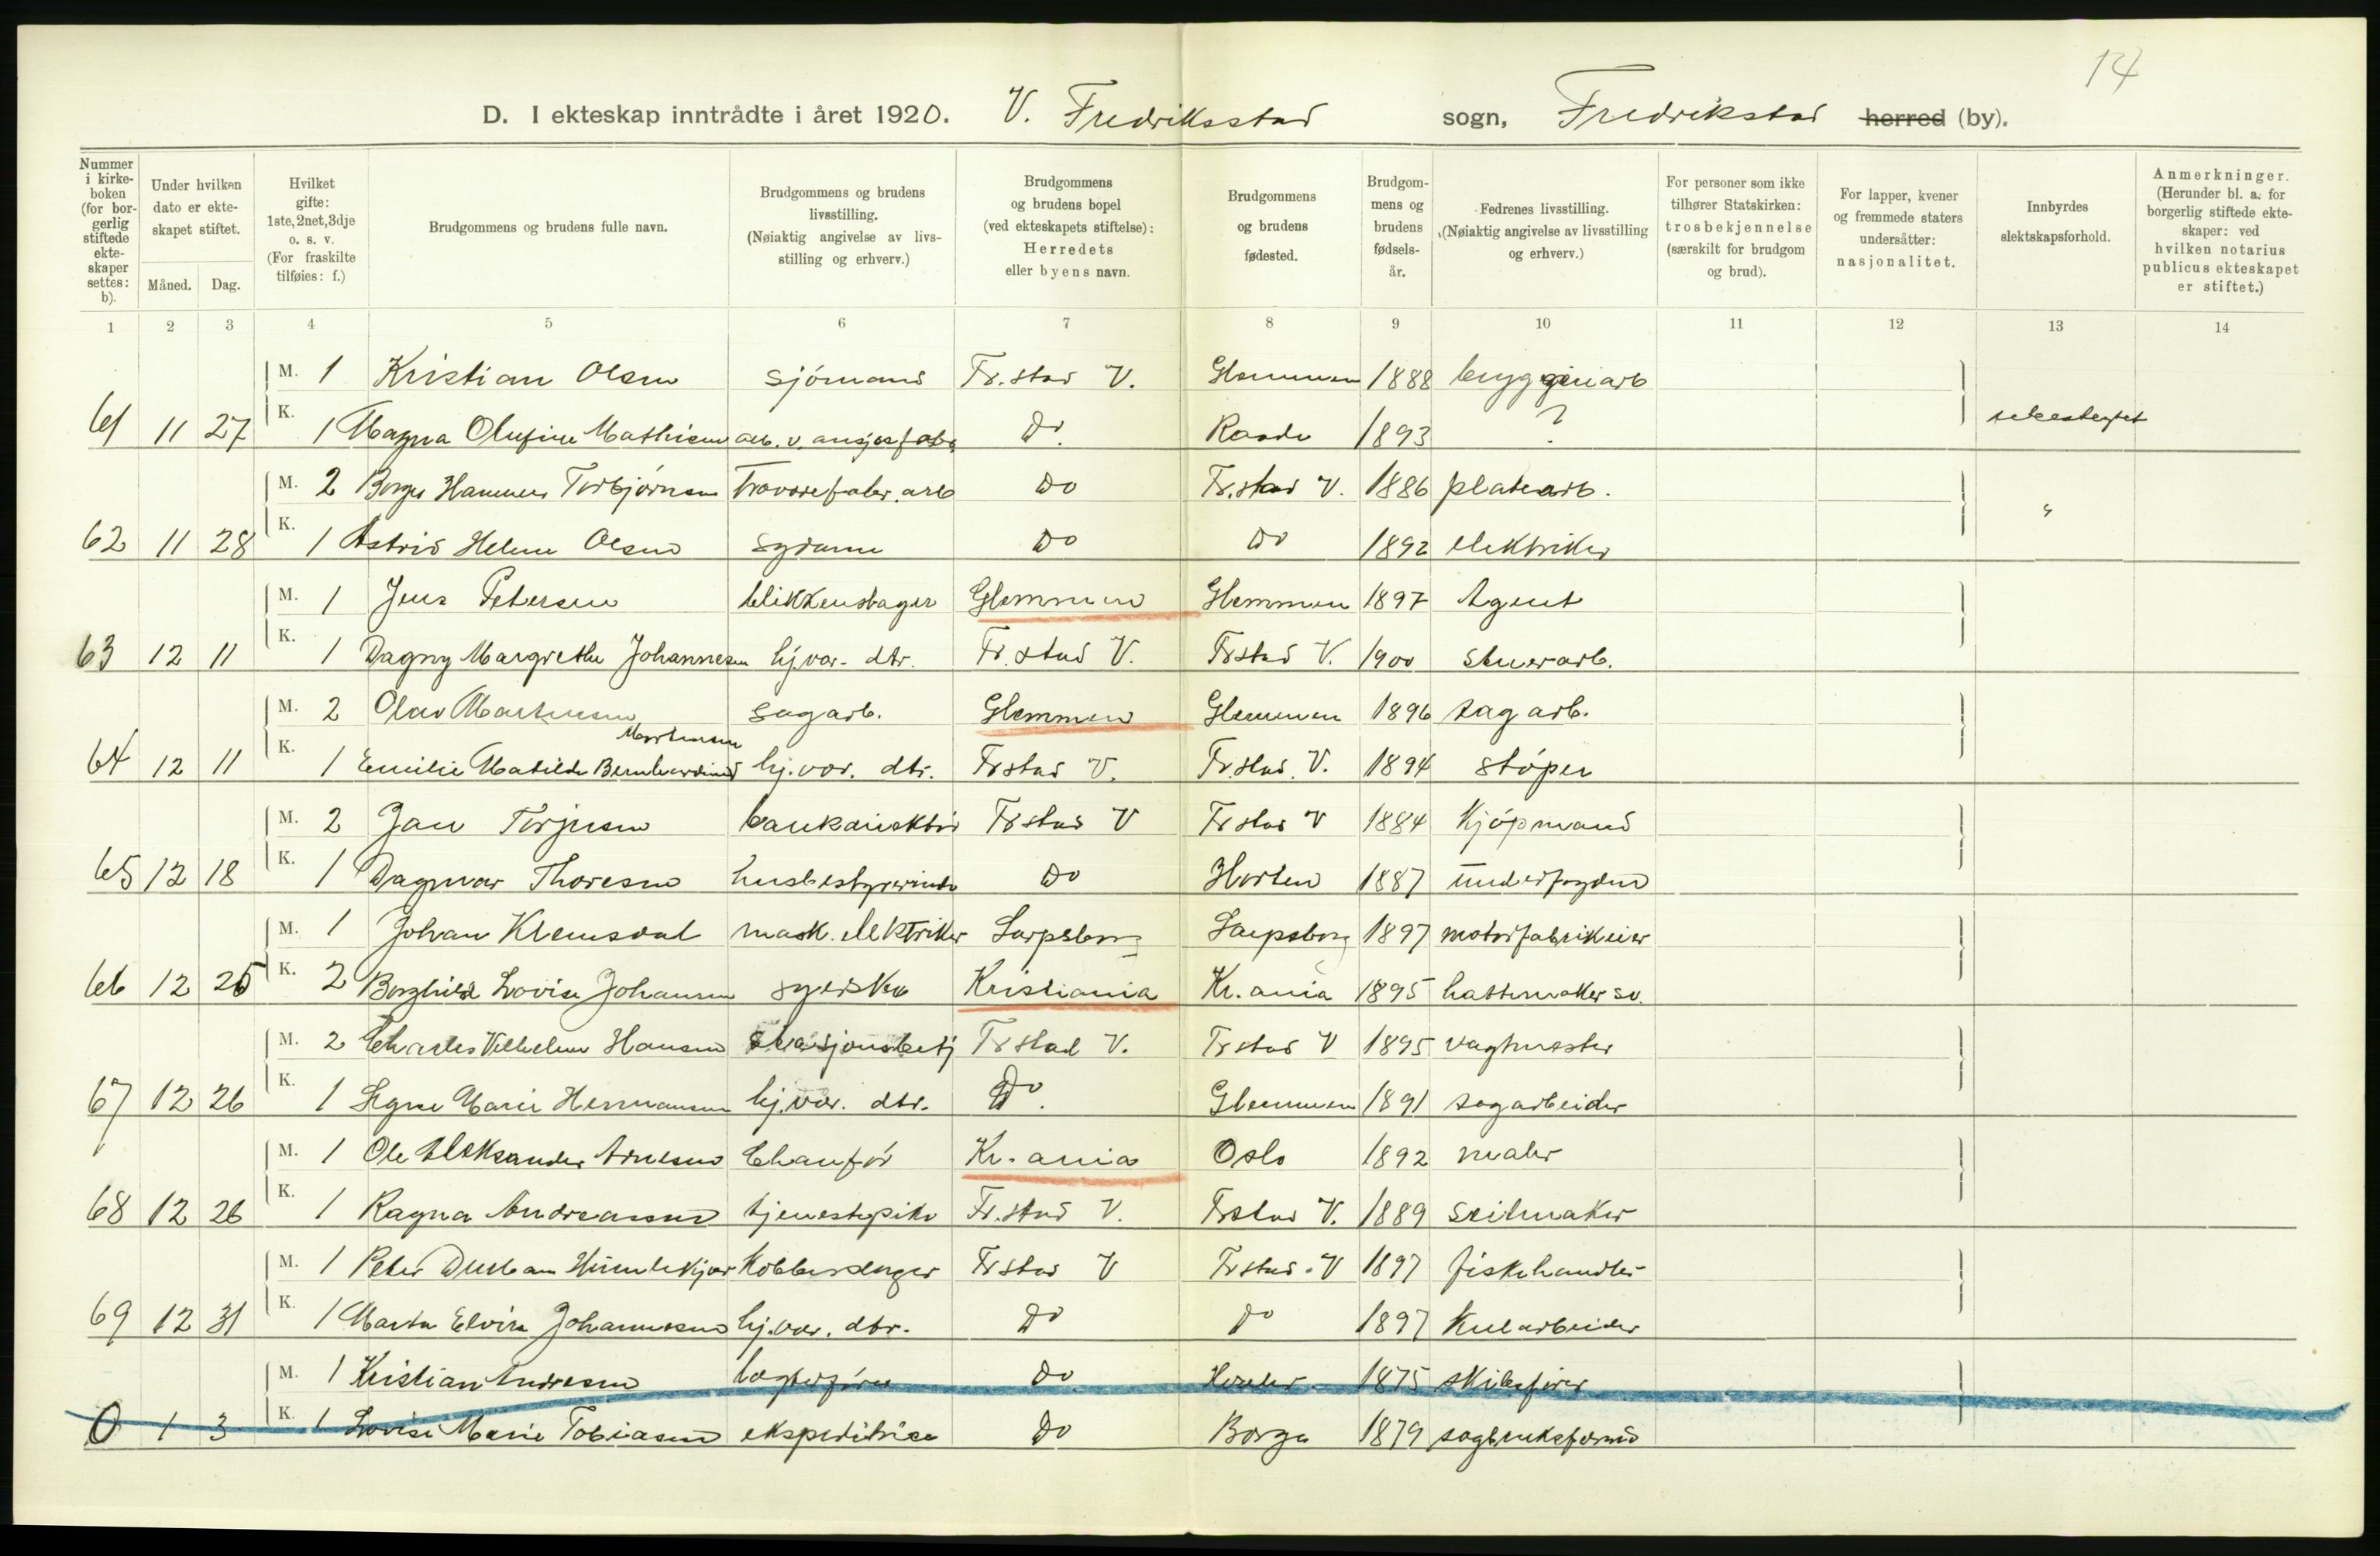 14
D. I ekteskap inntrådte i året 1920. V. Fredriksstad sogn, Fredrikstad herred (by).
Nummer i kirkeboken (for borgerlig stiftede ekteskaper settes: b).
Under hvilken dato er ekteskapet stiftet.
Måned. Dag.
Hvilket gifte: 1ste, 2net, 3dje o. s. v. (For fraskilte tilføies: f.)
Brudgommens og brudens fulle navn.
Brudgommens og brudens livsstilling. (Nøiaktig angivelse av livsstilling og erhverv.)
Brudgommens og brudens bopel (ved ekteskapets stiftelse): Herredets eller byens navn.
Brudgommens og brudens fødested.
Brudgommens og brudens fødselsår.
Fedrenes livsstilling. (Nøiaktig angivelse av livsstilling og erhverv.)
For personer som ikke tilhører Statskirken: trosbekjennelse (særskilt for brudgom og brud).
For lapper, kvener og fremmede staters undersåtter: nasjonalitet.
Innbyrdes slektskapsforhold.
Anmerkninger. (Herunder bl. a. for borgerlig stiftede ekteskaper: ved hvilken notarius publicus ekteskapet er stiftet.)
1 2 3 4 5 6 7 8 9 10 11 12 13 14
M. 1 Kristian Olsen sjömand Fr.stad V. Glemmen 1888 bryggeriarb
61 11 27 K. 1 Magna Olufine Mathisen arb. v. ansjosfabr Do. Raade 1893 ?
M. 2 Borger Hammer Torbjörnsen Trævarefabr. arb Do Fr.stad V. 1886 platearb.
62 11 28 K. 1 Astrid Helene Olsen sydame Do Do 1892 elektriker "
M. 1 Jens Petersen blikkenslager Glemmen Glemmen 1897 Agent
63 12 11 K. 1 Dagny Margrethe Johannesen hj.vær. dtr. Fr.stad V. Frstad V. 1900 stuerarb.
M. 2 Olav Martinsen sagarb. Glemmen Glemmen 1896 sagarb.
64 12 11 K. 1 Emilie Matilde Bernhardine Mortensen hj.vær. dtr. Frstad V. Fr.stad. V. 1894 stöper
M. 2 Jan Torjusen bankdirektör Frstad V Frstad V 1884 Kjöpmand
65 12 18 K. 1 Dagmar Thoresen husbestyrerinde Do Horten 1887 underfogden
M. 1 Johan Klemsdal mask. elektriker Sarpsborg Sarpsborg 1897 motorfabrikeier
66 12 25 K. 2 Borghild Lovise Johansen syerske Kristiania Kr. ania 1895 hattemaker sv.
M. 2 Charles Vilhelm Hansen stasjonsbetj Frstad V. Frstad V 1895 vagtmester
67 12 26 K. 1 Signe Marie Hermansen hj.vær. dtr. Do. Glemmen 1891 sagarbeider
M. 1 Ole Aleksander Arnesen Chauför Kr. ania Oslo 1892 maler
68 12 26 K. 1 Ragna Andreassen tjenestepike Fr.stad V. Frstad V. 1889 seilmaker
M. 1 Peter Durban Himlekjær Kobberslager Frstad V Frstad. V 1897 fiskehandler
69 12 31 K. 1 Marta Elvira Johannesen hj.vær. dtr. Do Do 1897 Kularbeider
M. 1 Kristian Andresen lægterförer Do Hvaler 1875 skibsförer
0 1 3 K. 1 Lovise Marie Tobiasen ekspeditrice Do Borge 1879 sagbruksformd